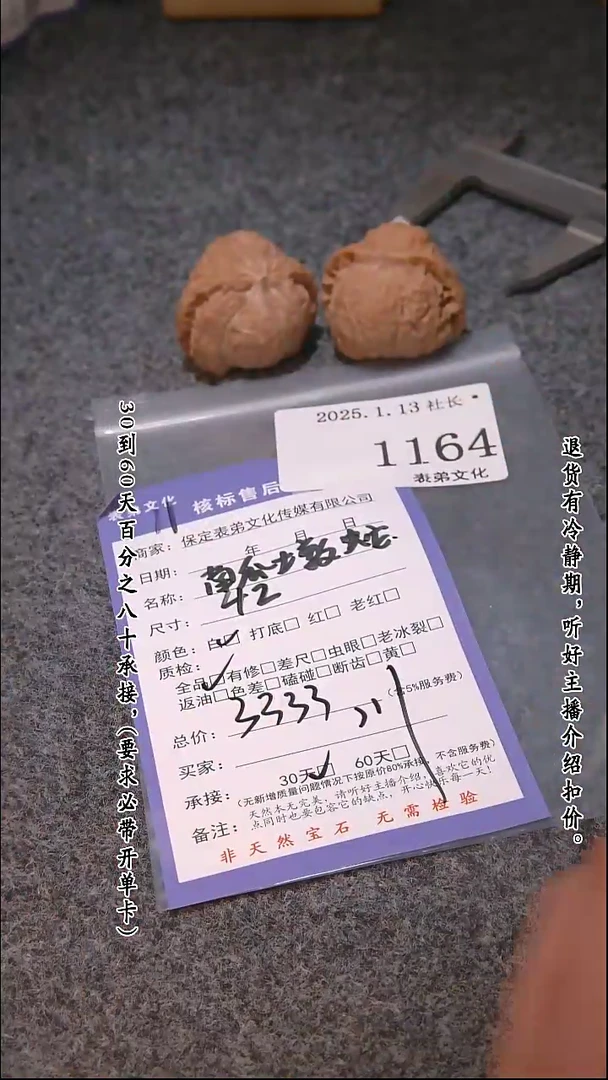 30到60天百分之八十承接，（要求必带开单卡）
退货有冷静期，听好主播介绍扣价。
2025.1.13 社长
1164
表弟文化
表弟文化 核标售后
商家：保定表弟文化传媒有限公司
日期： 年 月 日
名称：南瓜
尺寸：42
颜色：白☑ 打底□ 红□ 老红□
质检：
全品☑有修□差尺□虫眼□老冰裂□
返油□色差□磕碰□断齿□黄□
总价：3333 （含5%服务费）
买家：
承接：30天☑ 60天□
（无新增质量问题情况下按原价80%承接，不含服务费）
备注：天然木无完美，请听好主播介绍，喜欢它的优
点同时也要包容它的缺点，开心快乐每一天！
非天然宝石 无需检验